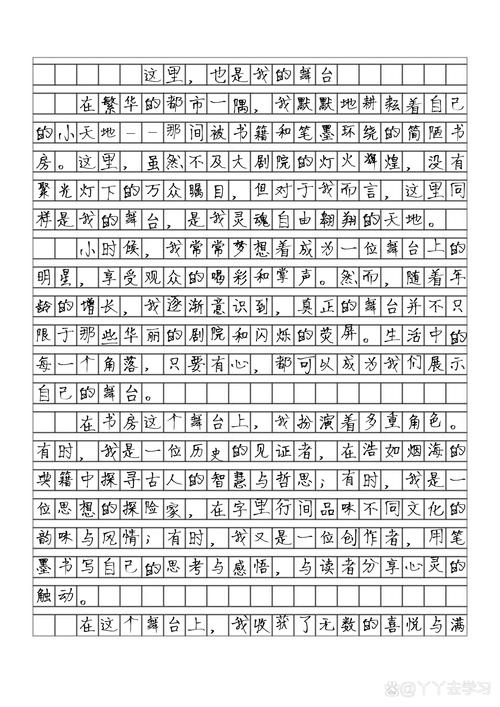 这里，也是我的舞台
在繁华的都市一隅，我默默地耕耘着自己
的小天地--那间被书籍和笔墨环绕的简陋书
房。这里，虽然不及大剧院的灯火辉煌，没有
聚光灯下的万众瞩目，但对于我而言，这里同
样是我的舞台，是我灵魂自由翱翔的天地。
小时候，我常常梦想着成为一位舞台上的
明星，享受观众的喝彩和掌声。然而，随着年
龄的增长，我逐渐意识到，真正的舞台并不只
限于那些华丽的剧院和闪烁的荧屏。生活中的
每一个角落，只要有心，都可以成为我们展示
自己的舞台。
在书房这个舞台上，我扮演着多重角色。
有时，我是一位历史的见证者，在浩如烟海的
典籍中探寻古人的智慧与哲思；有时，我是一
位思想的探险家，在字里行间品味不同文化的
韵味与风情；有时，我又是一位创作者，用笔
墨书写自己的思考与感悟，与读者分享心灵的
触动。
在这个舞台上，我收获了无数的喜悦与满
@丫丫去学习